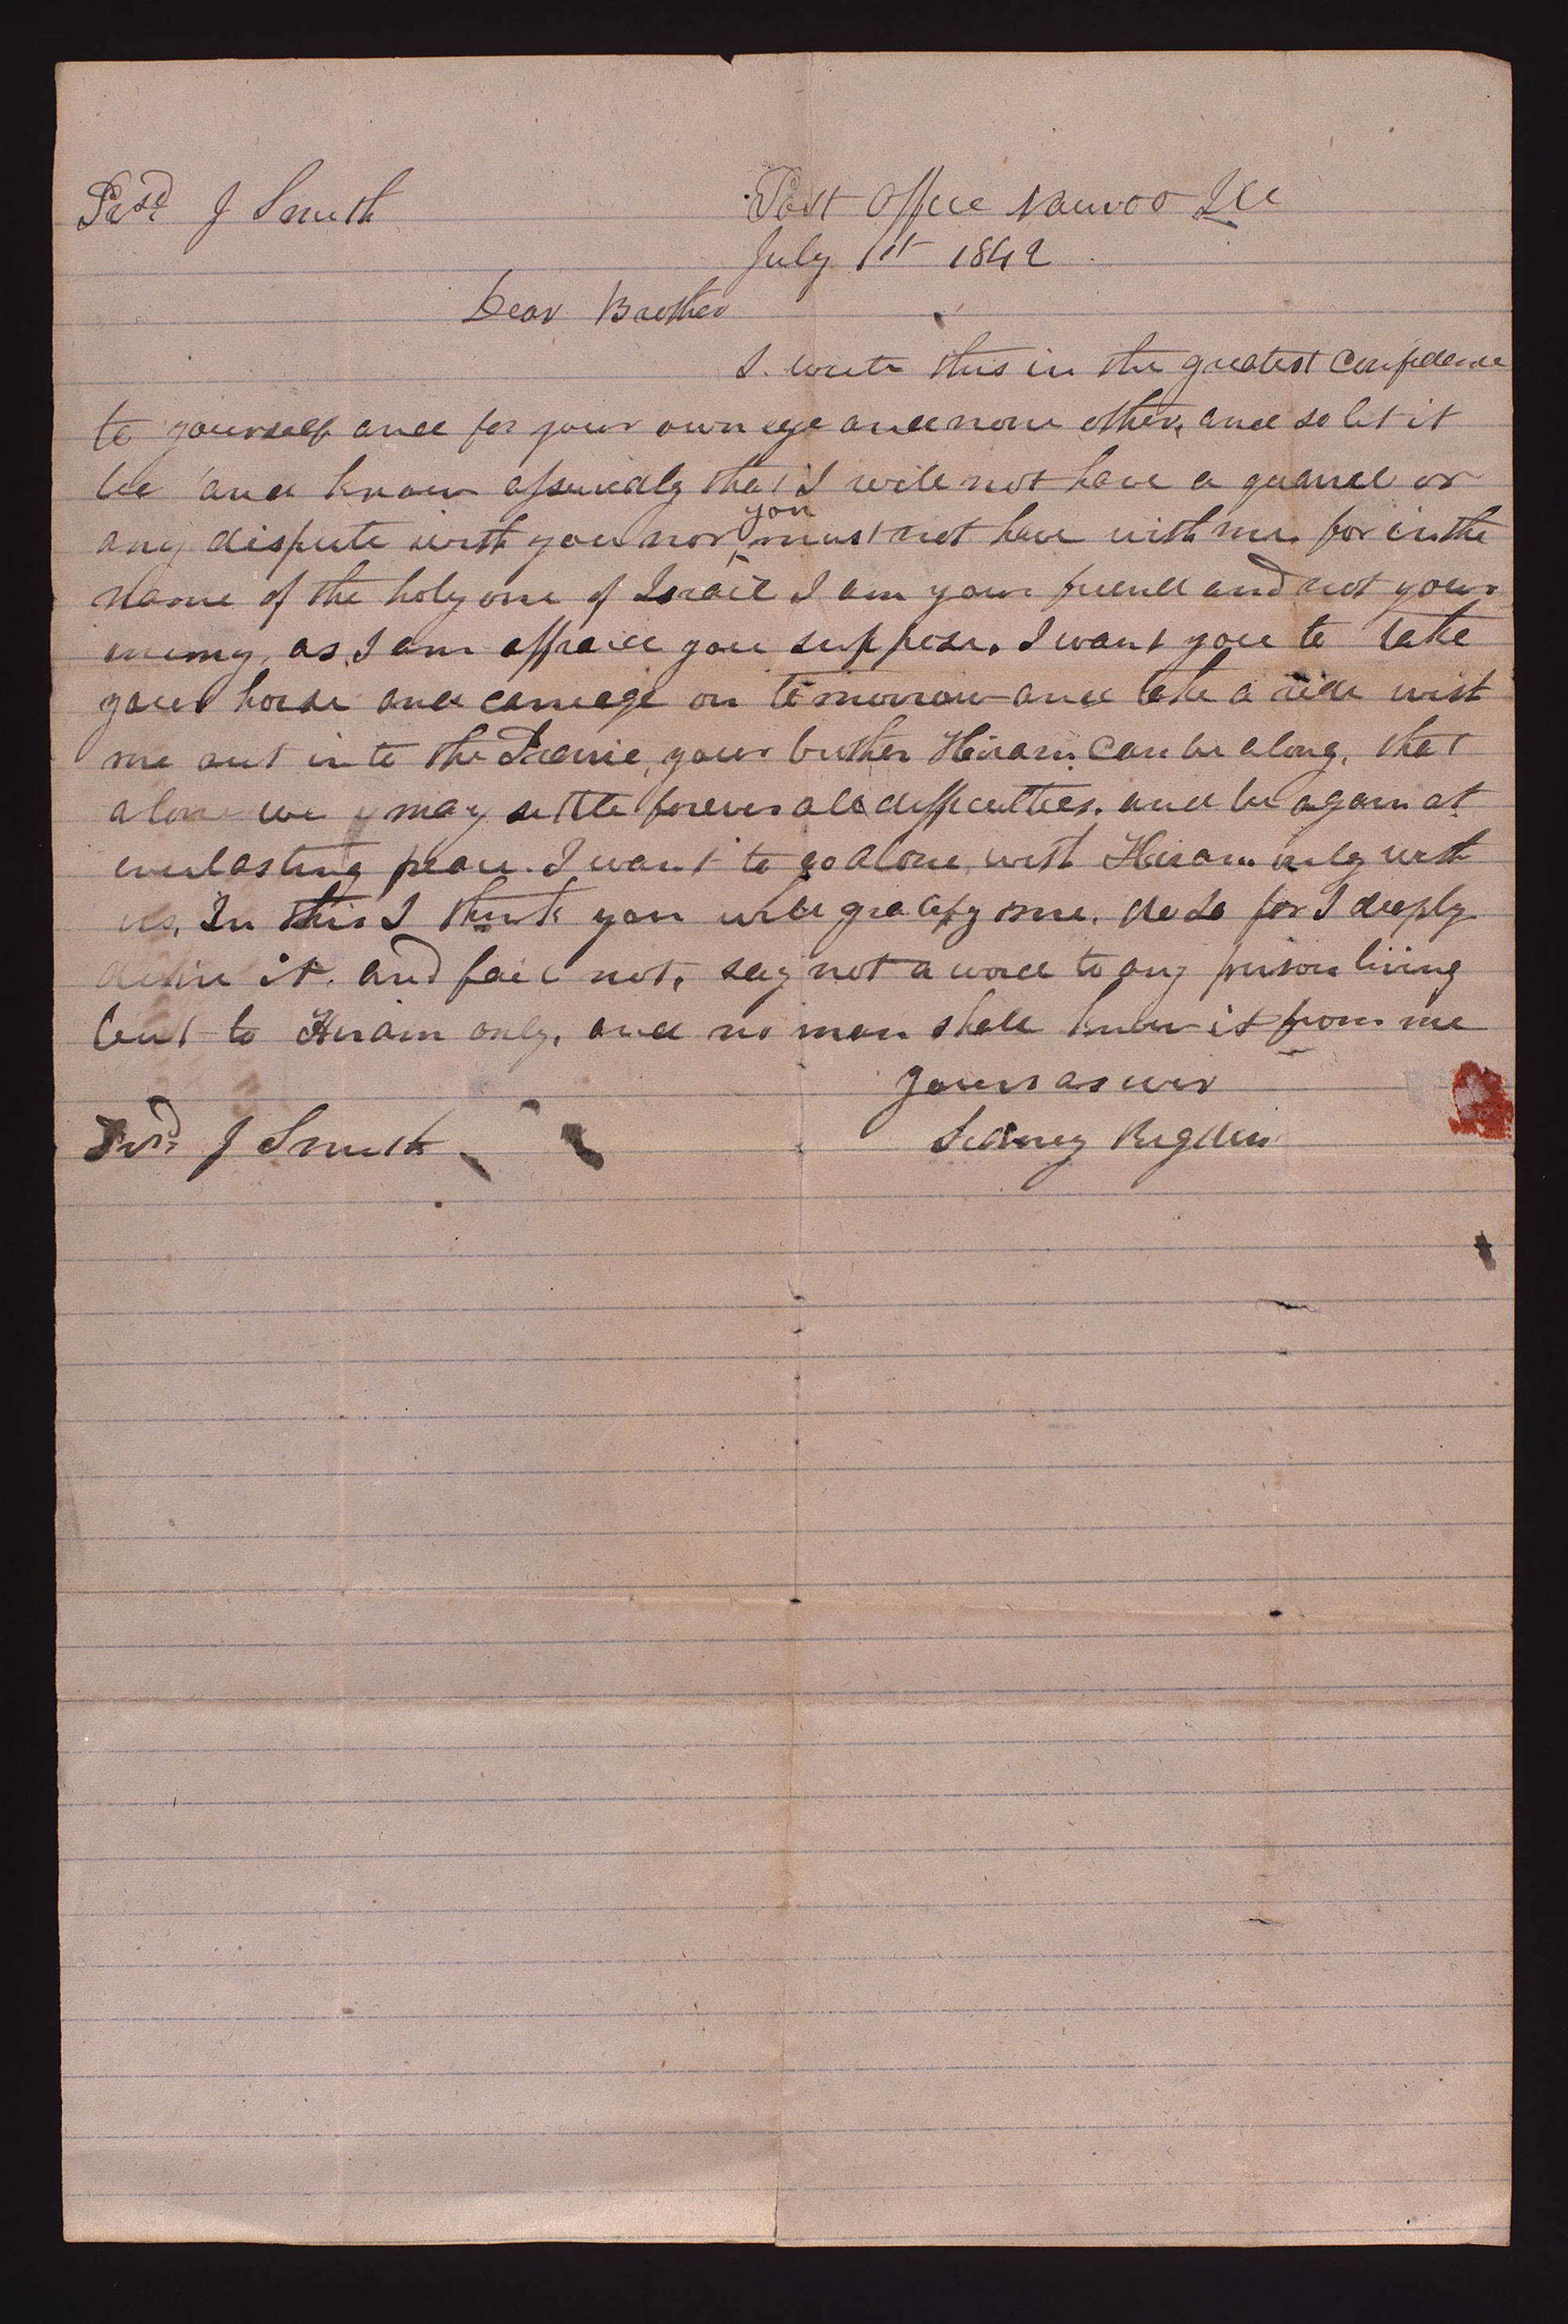 Presd. J Smith
Post Office Nauvoo Ill
July 1st 1842
Dear Brother
I. write this in the greatest confidence
to yourself and for your own eye and none other, and so let it
be and know assuredly that I will not have a quarrel or
any dispute with you nor you must not have with me. for in the
name of the holy one of Israel I am your friend and not your
enemy, as I am affraid you suppose. I want you to take
your horse and carriage on tomorrow and take a ride with
me out into the Prairie, your brother Hiram can be along, that
alone we may settle forever all difficulties. and be again at
everlasting peace. I want to go alone with Hiram only with
us. In this I think you will gratify me. do so for I deeply
desire it. and fail not, say not a word to any person living
but to Hiram only, and no man shall know it from me
yours as ever
Sidney Rigdon
Presd. J Smith